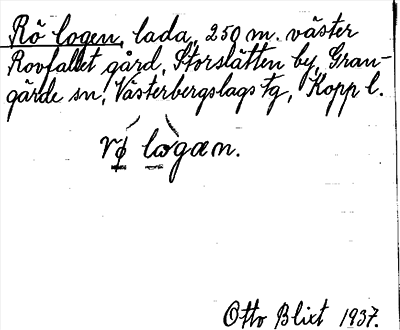 Rö logen, lada, 250 m. väster
Rovfallet gård, Storslätten by, Gran-
gärde sn, Västerbergslags tg, Kopp l.
rø̀ lògæn.
Otto Blixt 1937.